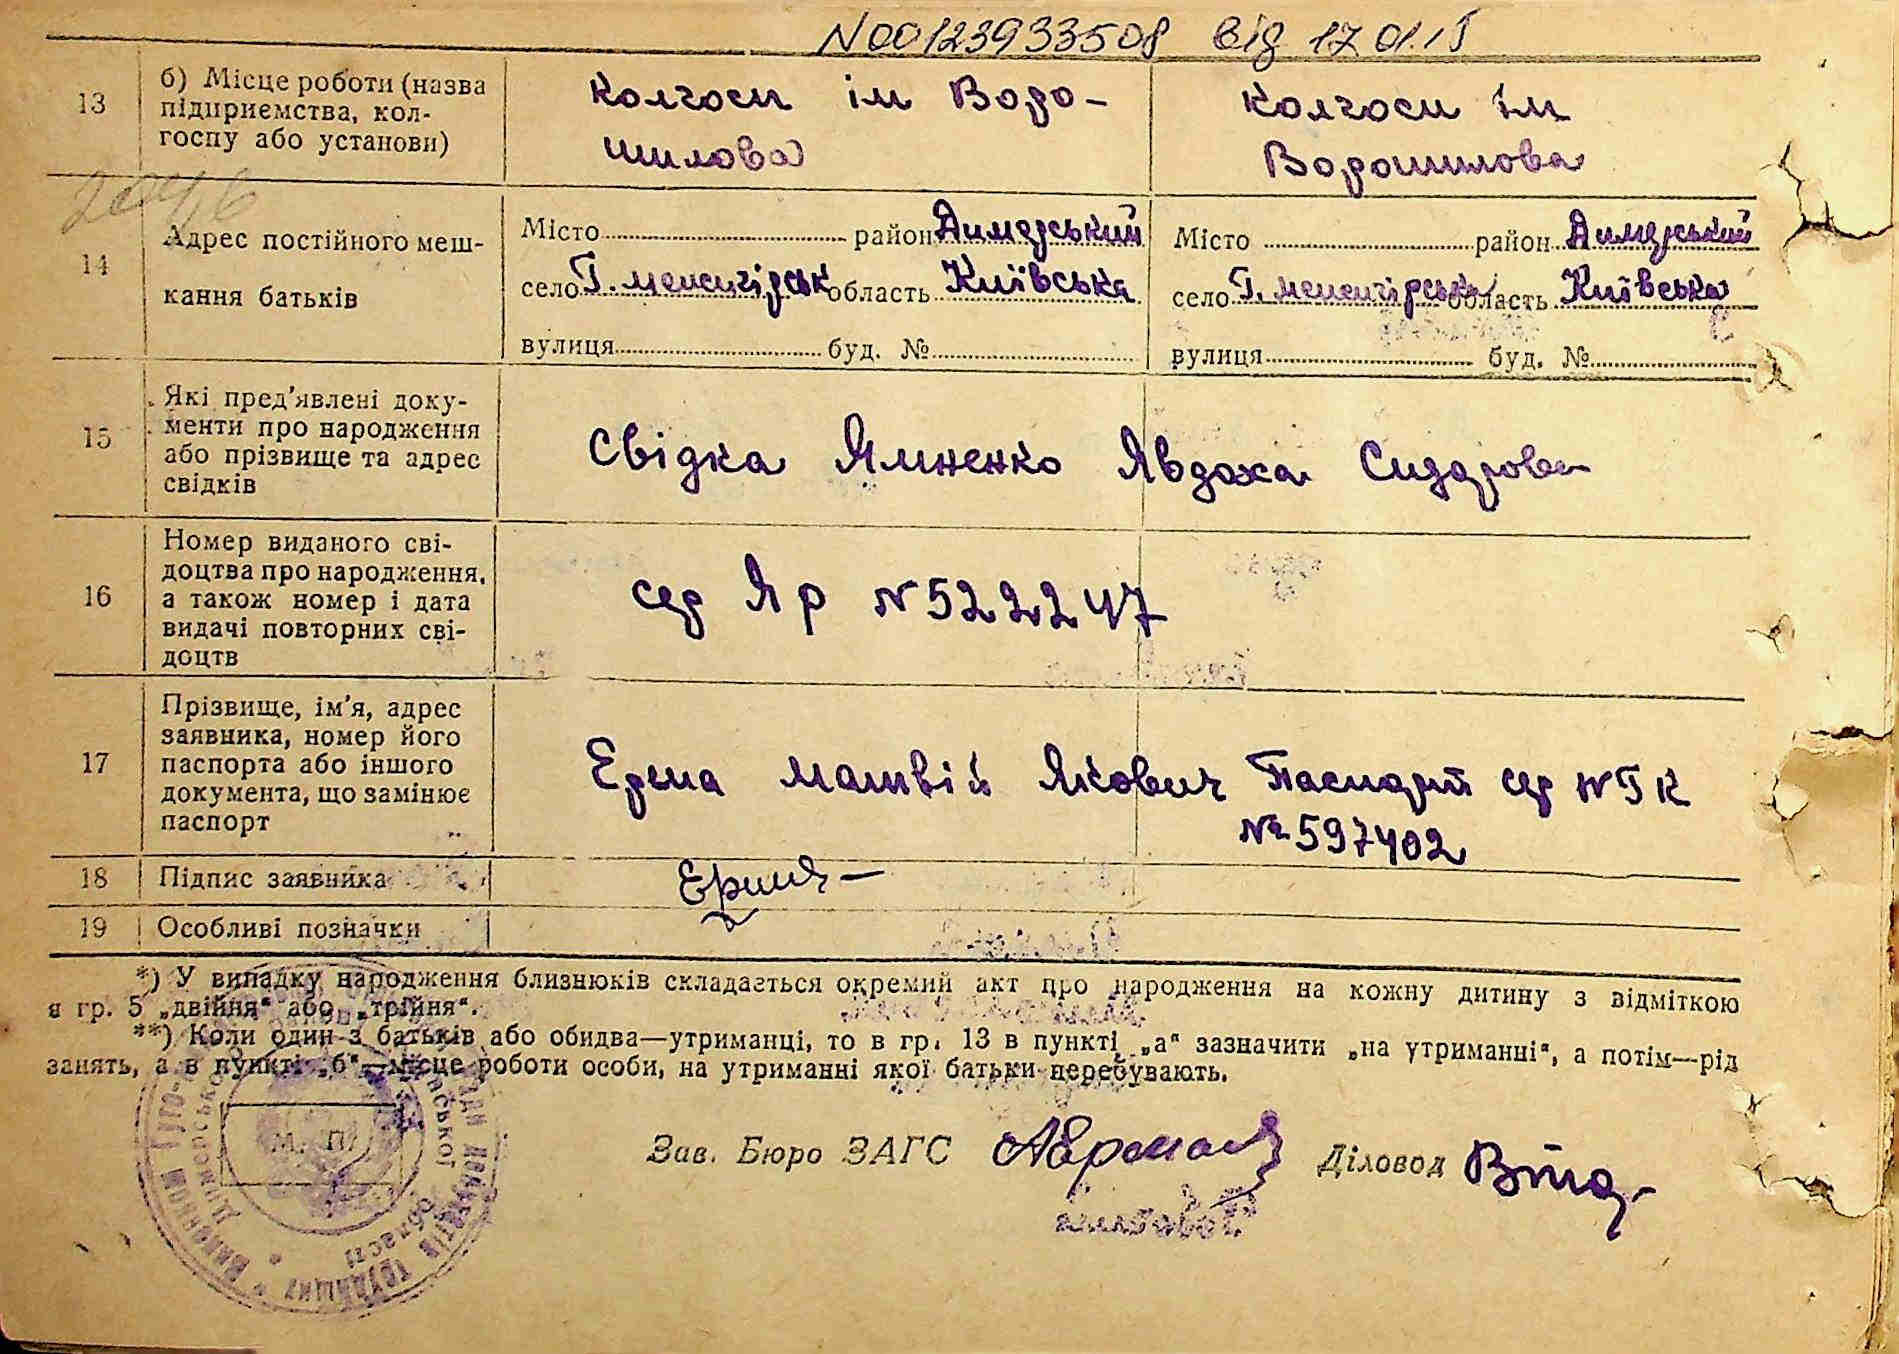 N00123933508 від 17 01.15
13
б) Місце роботи (назва
підприємства, кол-
госпу або установи)
Колгосп ім Воро-
шилова
Колгосп ім
Ворошилова
14
Адрес постійного меш-
кання батьків
Місто район Димерський
село Г. межигірськ область Київська
вулиця буд. №
Місто район Димерський
село Г. межигірська область Київська
вулиця буд. №
15
Які пред'явлені доку-
менти про народження
або прізвище та адрес
свідків
Свідка Ямненко Явдоха Сидорова
16
Номер виданого сві-
доцтва про народження,
а також номер і дата
видачі повторних сві-
доцтв
сер Яр N 522247
17
Прізвище, ім'я, адрес
заявника, номер його
паспорта або іншого
документа, що замінює
паспорт
Ерма Матвій Якович Паспорт сер № ГК
№ 597402
18
Підпис заявника
19
Особливі позначки
*) У випадку народження близнюків складається окремий акт про народження на кожну дитину з відміткою
я гр. 5 „двійня“ або „трійня“.
**) Коли один з батьків або обидва—утриманці, то в гр. 13 в пункті „а“ зазначити „на утриманні“, а потім—рід
занять, а в пункті „б“—місце роботи особи, на утриманні якої батьки перебувають.
М. П.
Зав. Бюро ЗАГС
Діловод